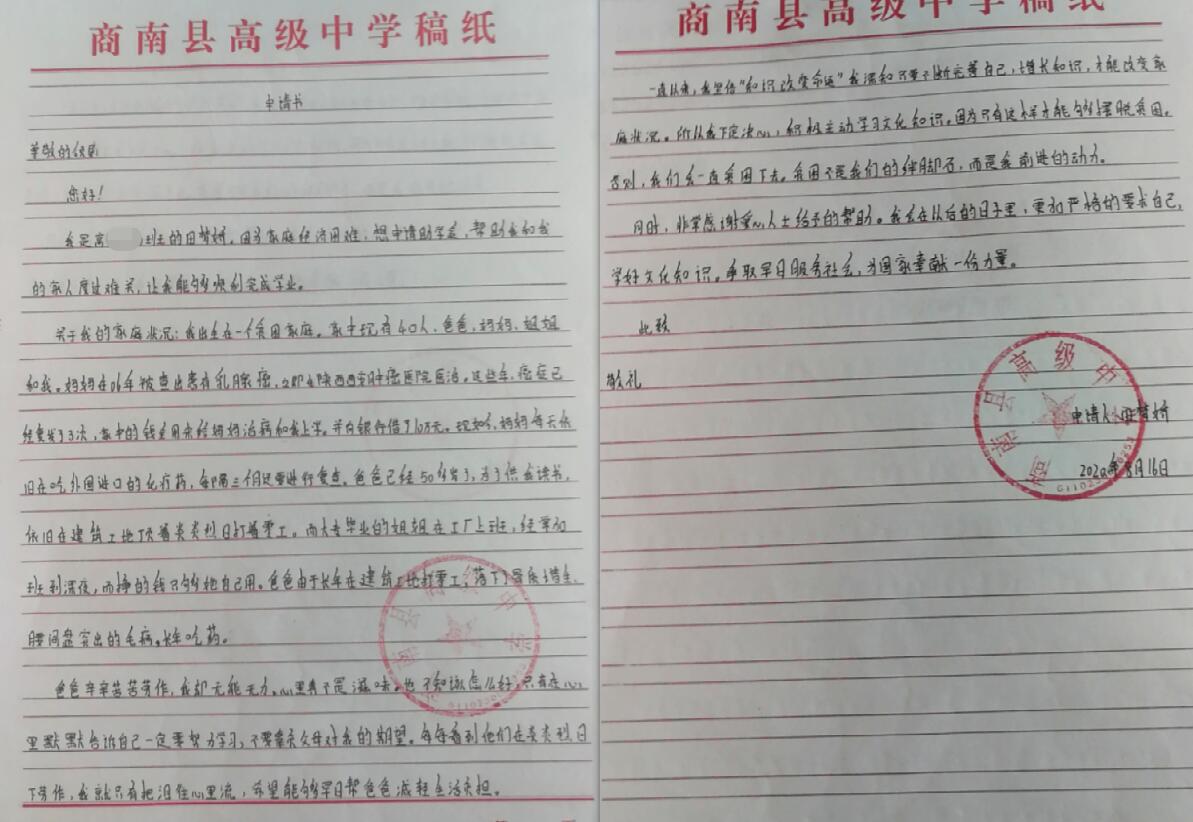 商南县高级中学稿纸
申请书
尊敬的领导
您好！
我是高 班的田梦娇，因为家庭经济困难，想申请助学金，帮助我和我
的家人度过难关，让我能够顺利完成学业。
关于我的家庭状况：我出生在一个贫困家庭。家中现有4口人，爸爸，妈妈，姐姐
和我。妈妈在06年被查出患有乳腺癌，立即去陕西西安肿瘤医院医治。这些年，癌症已
经复发了3次，家中的钱全用来给妈妈治病和我上学。并向银行借了10万元。现如今，妈妈每天依
旧在吃外国进口的化疗药，每隔三个月还要进行复查。爸爸已经50多岁了，为了供我读书，
依旧在建筑工地顶着炎炎烈日打着零工。而大专毕业的姐姐在工厂上班，经常加
班到深夜，而挣的钱只够她自己用。爸爸由于长年在建筑工地打零工，落下了骨质增生、
腰间盘突出的毛病，长年吃药。
爸爸辛辛苦苦劳作，我却无能无力。心里真不是滋味，也不知该怎么好，只有在心
里默默告诉自己一定要努力学习，不要辜负父母对我的期望。每每看到他们在炎炎烈日
下劳作，我就只有把泪往心里流，希望能够早日帮爸爸减轻生活负担。
商南县高级中学稿纸
一直以来，我坚信"知识改变命运"我深知只要不断完善自己，增长知识，才能改变家
庭状况。所以我下定决心，积极主动学习文化知识。因为只有这样才能够摆脱贫困。
否则，我们会一直贫困下去。贫困不是我们的绊脚石，而是我前进的动力。
同时，非常感谢爱心人士给予的帮助。我会在以后的日子里，更加严格的要求自己，
学好文化知识。争取早日服务社会，为国家奉献一份力量。
此致
敬礼
申请人：田梦娇
2020年8月16日
商南县高级中学